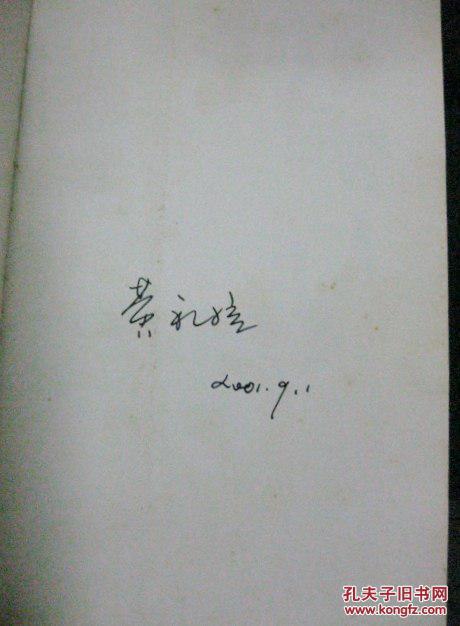 黄礼孩
2001.9.1
孔夫子旧书网
www.kongfz.com